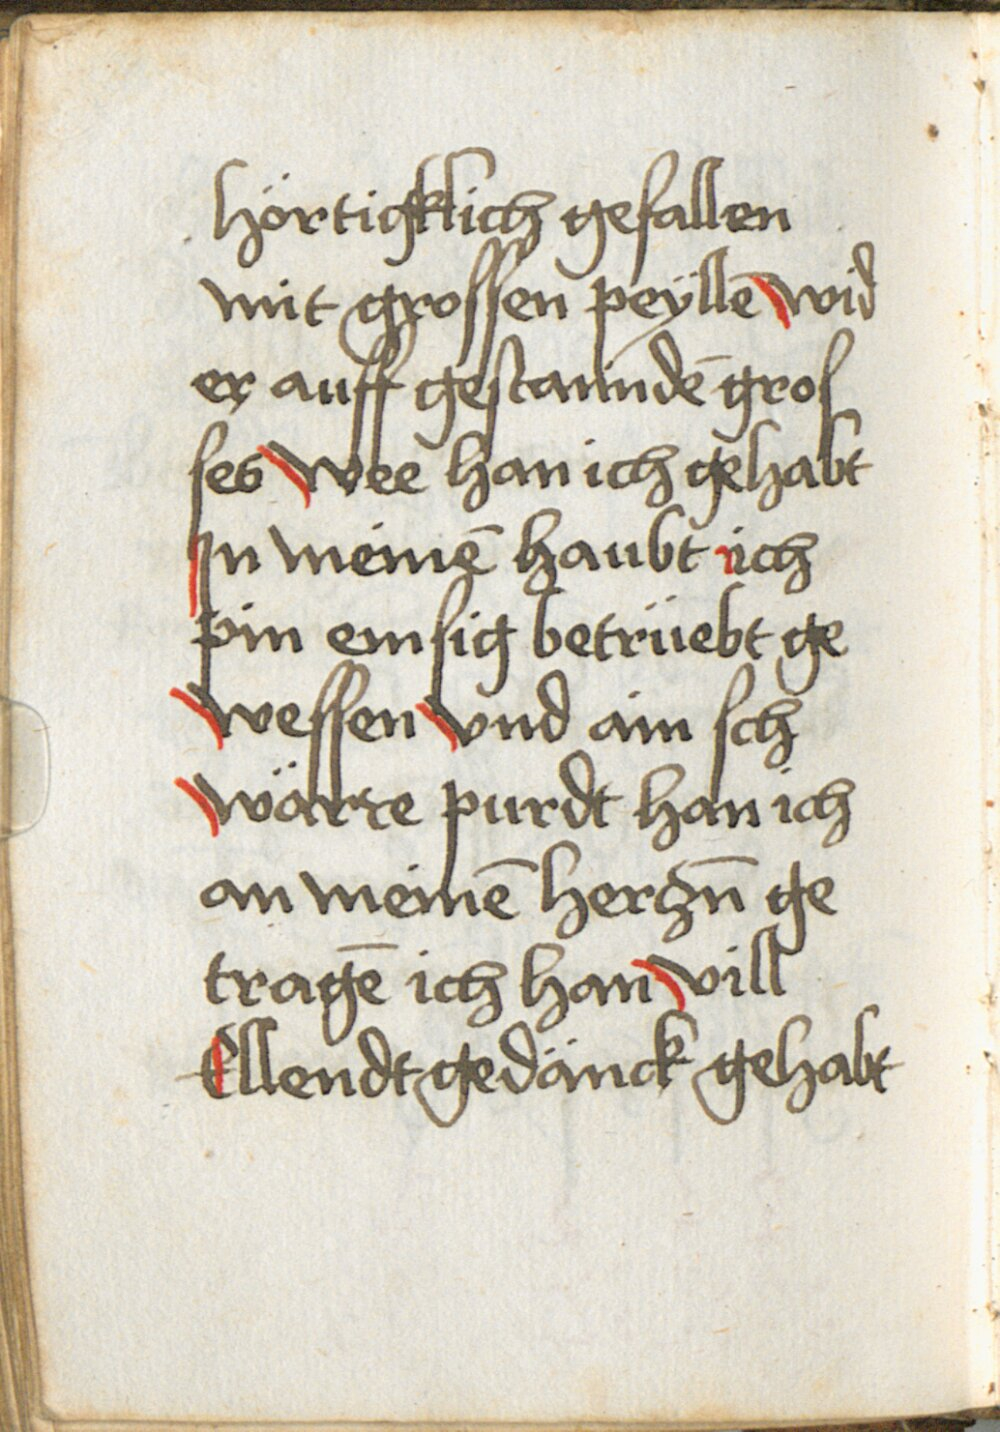 hörtigklich gefallen
mit grossen peÿllē wid
er auff gestannndē gros
ses wee han ich gehabt
Jn meinē haubt ich
pin emsig betrüebt ge
wessen vnd ain sch
wärre purdt han ich
an meinē herczn̄ ge
tragē ich han vill
Ellendt gedänck gehabt